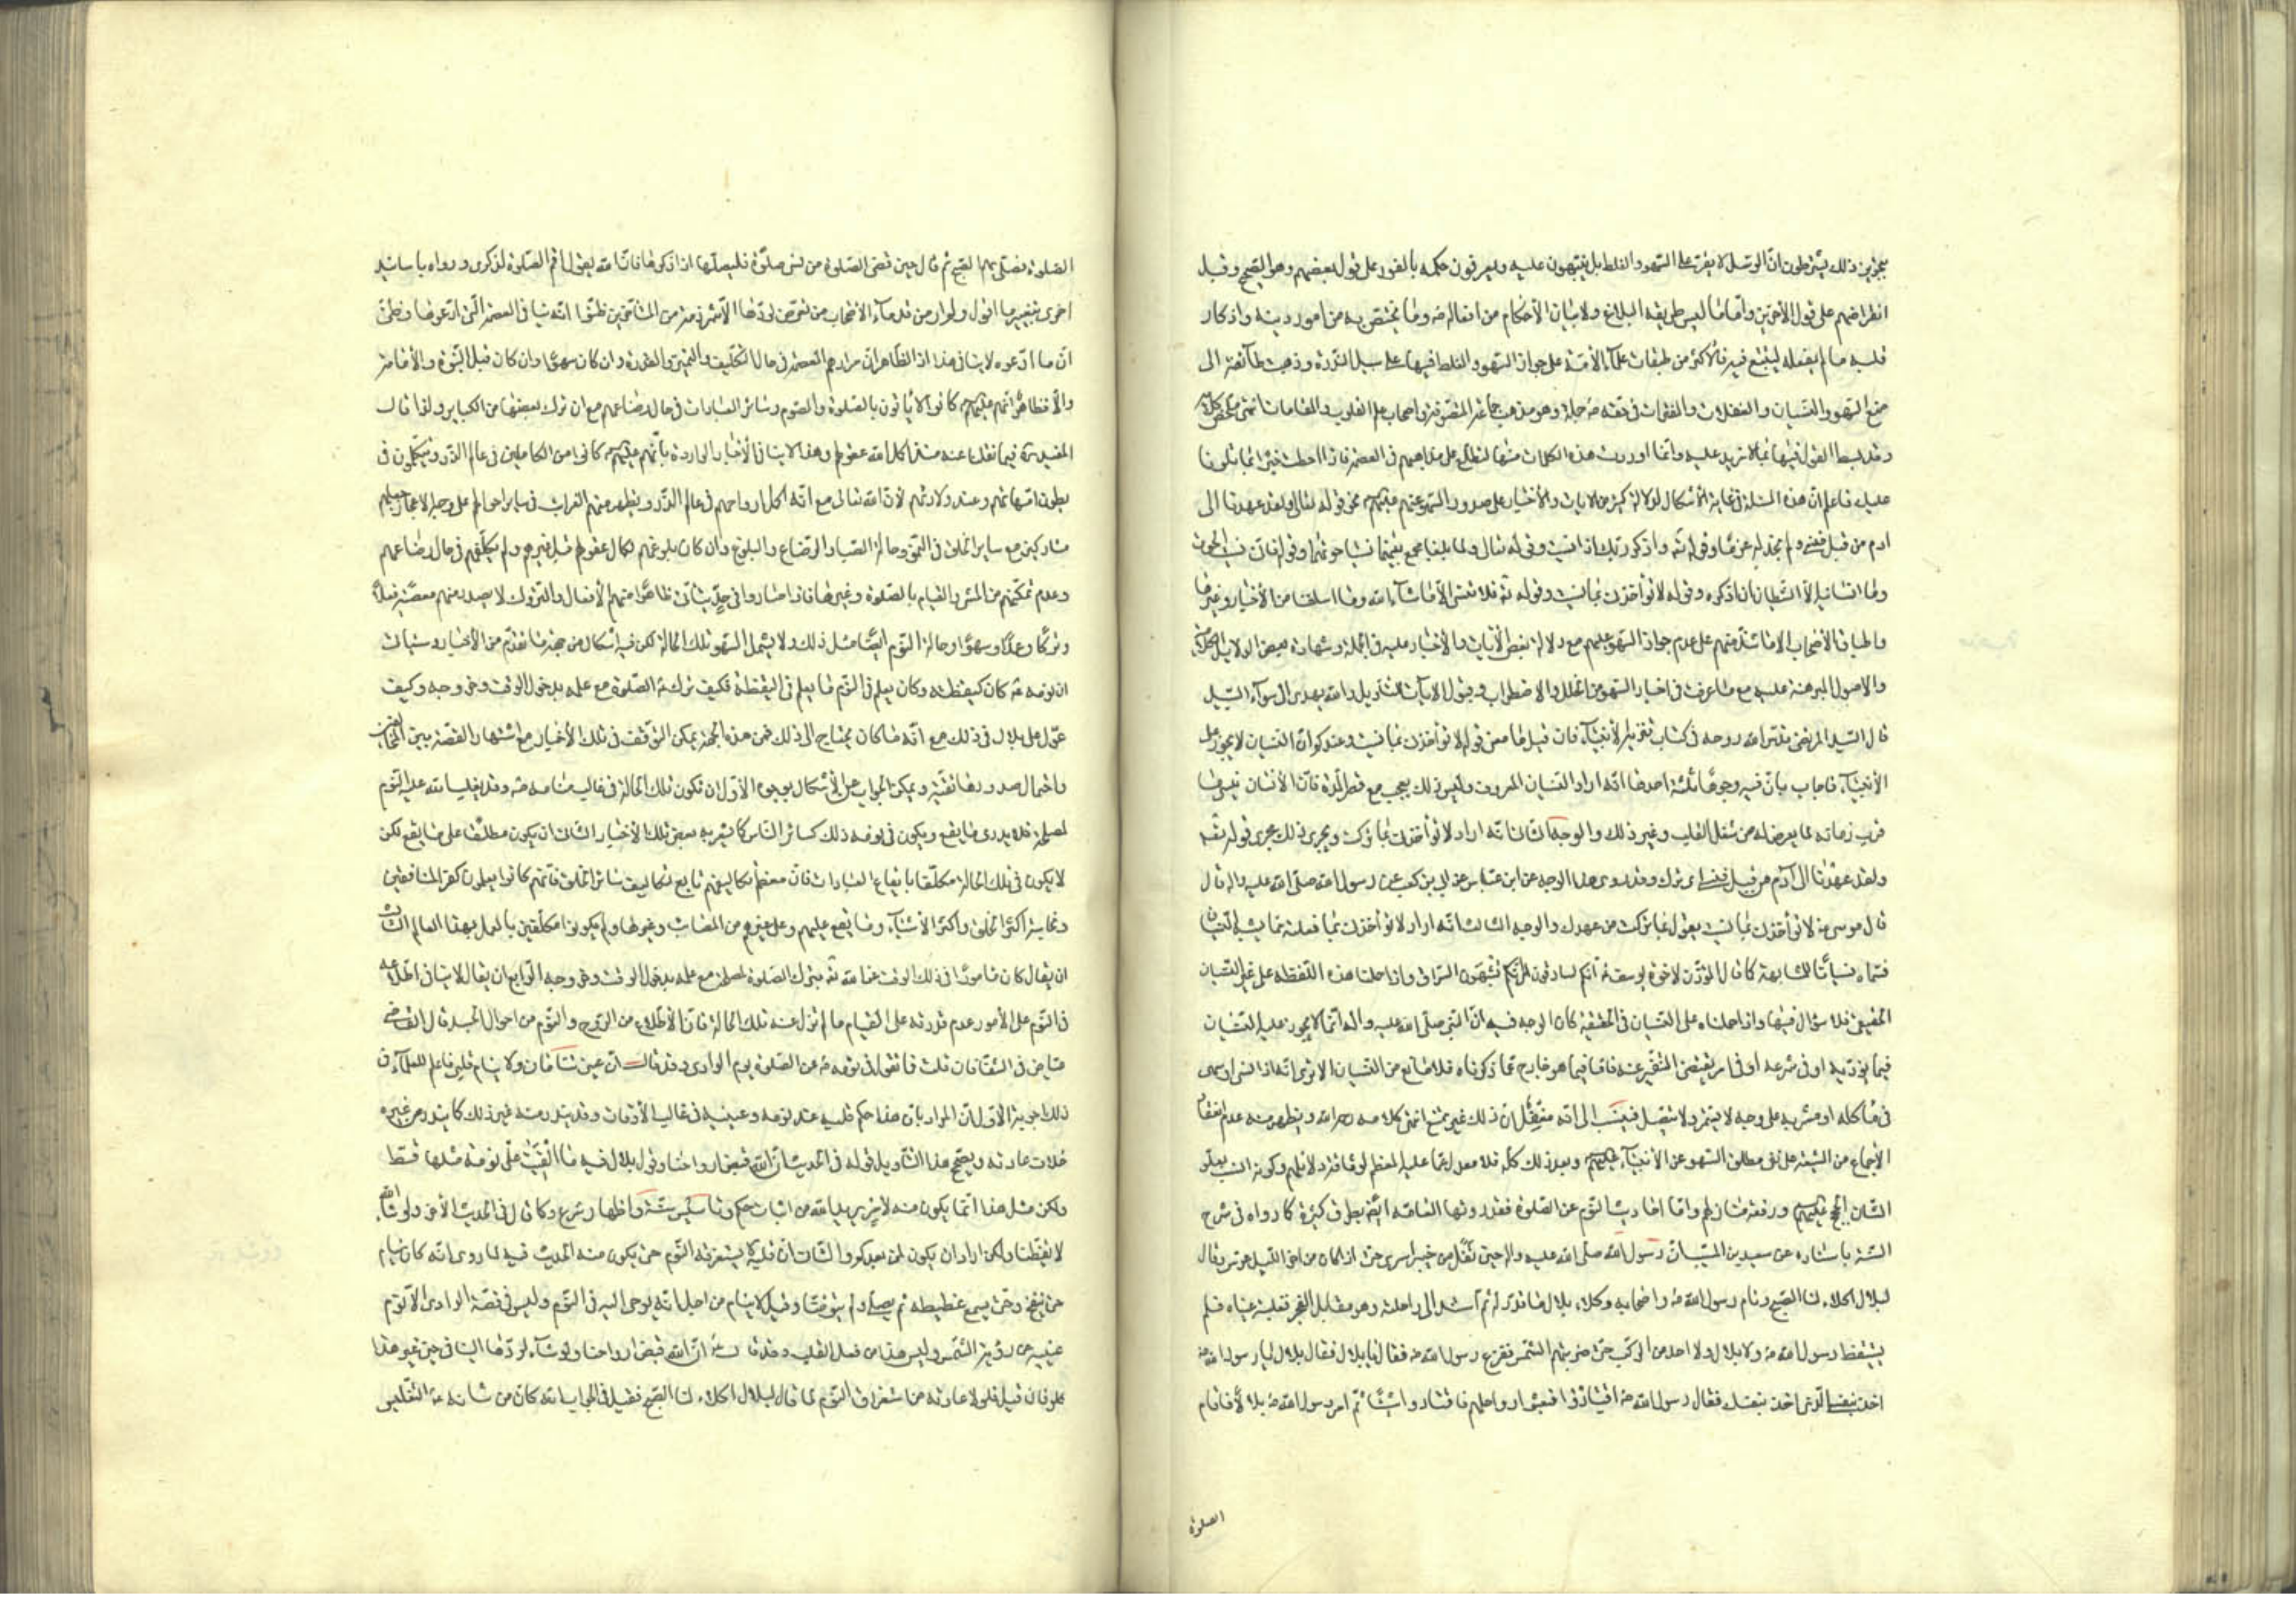 يجوزين ذلك يشترطون ان الرسل لا يقر على السهو والغلط بل ينبهون عليه ويعرفون حكمه بالفور على قول بعضهم وهو الصحيح وقبل
انقراضهم على قول الآخرين واما ما ليس طريقه البلاغ ولا بيان الأحكام من افعاله ص وما يختص به من امور دينه واذكار
قلبه مما لم يفعله ليتبع فيه فالأكثر من طبقات علمآء الأمة على جواز السهو والغلط فيها على سبيل الندرة وذهبت طآئفة الى
منع السهو والنسيان والغفلات والفترات في حقه ص جملة وهو مذهب جماعة المتصوفة واصحاب علم القلوب والمقامات انتهى ملخص كلامه
وقد بسط القول فيها بما لا مزيد عليه وانما اوردت هذه الكلمات منها لتطلع على مذاهبهم في العصمة فاذا احطت خبرا بما تلونا
عليك فاعلم ان هذه المسئلة في غاية الأشكال لدلالة كثير من الايات والأخبار على صدور السهو عنهم عليهم السلم نحو قوله تعالى ولقد عهدنا الى
ادم من قبل فنسي ولم نجد له عزما وقوله تع واذكر ربك اذا نسيت وقوله تعالى فلما بلغا مجمع بينهما نسيا حوتهما وقوله فاني نسيت الحوت
وما انسانيه الا الشيطان ان اذكره وقوله لا تؤاخذني بما نسيت وقوله تع فلا تنسى الا ما شآء الله وما اسلفنا من الأخبار وغيرها
واطباق الأصحاب الا ما شذ منهم على عدم جواز السهو عليهم مع دلالة بعض الأيات والأخبار عليه في الجملة وشهادة بعض الدلايل الكلامية
والاصول المبرهنة عليه مع ما عرفت في اخبار السهو من الخلل والاضطراب وقبول الايات للتأويل والله يهدي الى سوآء السبيل
قال السيد المرتضى قدس الله روحه في كتاب تنزيه الأنبيآء فان قيل ما معنى قوله لا تؤاخذني بما نسيت وعندكم ان النسيان لا يجوز على
الأنبيآء فاجاب بأن فيه وجوها ثلثة احدها انه اراد النسيان المعروف وليس ذلك بعجب مع قصر المدة فان الأنسان ينسى ما
قرب زمانه لما يعرض له من شغل القلب وغير ذلك والوجه الثاني انه اراد لا تؤاخذني بما تركت ويجري ذلك مجرى قوله تعه
ولقد عهدنا الى آدم من قبل فنسي اى ترك وقد روى هذا الوجه عن ابن عباس عن ابي بن كعب عن رسول الله صلى الله عليه واله قال
قال موسى ع لا تؤاخذني بما نسيت يقول بما تركت من عهدك والوجه الثالث انه اراد لا تؤاخذني بما فعلته مما يشبه النسيان
فسماه نسيانا للمشابهة كما قال المؤذن لاخوة يوسف ع انكم لسارقون اى انكم تشبهون السراق واذا حملنا هذه اللفظه على غير النسيان
الحقيقي فلا سؤال فيها واذا حملناه على النسيان في الحقيقة كان الوجه فيه ان النبي صلى الله عليه واله انما لا يجوز عليه النسيان
فيما يؤديه او في شرعه او في امر يقتضي التنفير عنه فاما فيما هو خارج عما ذكرناه فلا مانع من النسيان الا ترى انه اذا نسي او سهى
في مأكله او مشربه على وجه لا يستمر ولا يتصل فينسب الى انه مغفل ان ذلك غير ممتنع انتهى كلامه رحمه الله ويظهر منه عدم انعقاد
الاجماع من الشيعة على نفي مطلق السهو عن الأنبيآء عليهم السلم وبعد ذلك كله فلا معدل عما عليه المعظم لوثاقة دلائلهم وكونه انسب بعلو
الشان الحجج عليهم السلم ورفعة منازلهم واما احاديث النوم عن الصلوة فقد روتها العامه ايضا بطرق كثيرة كما رواه في شرح
السنة باسناده عن سعيد بن المسيب ان رسول الله صلى الله عليه واله حين قفل من خيبر اسرى حتى اذا كان من اخر الليل عرس وقال
لبلال اكلاء لنا الصبح ونام رسول الله ص واصحابه وكلاء بلال ما قدر له ثم استند الى راحلته وهو مقابل الفجر فغلبته عيناه فلم
يستيقظ رسول الله ص ولا بلال ولا احد من الركب حتى ضربتهم الشمس ففزع رسول الله ص فقال يا بلال فقال بلال يا رسول الله ص
اخذ بنفسي الذي اخذ بنفسك فقال رسول الله ص اقتادوا فبعثوا رواحلهم فاقتادوا شيئا ثم امر رسول الله ص بلالا فاقام
الصلوة
الصلوة فصلى بهم الصبح ثم قال حين قضى الصلوة من نسي صلوة فليصلها اذا ذكرها فان الله يقول اقم الصلوة لذكري ورواه باسانيد
اخرى بتغيير ما اقول ولم ار من قدمآء الأصحاب من تعرض لردها الا شرذمة من المتأخرين ظنوا انه ينافي العصمة التي ادعوها وظني
ان ما ادعوه لا ينافي هذا اذ الظاهر ان مرادهم العصمة في حال التكليف والتمييز والقدرة وان كان سهوا وان كان قبل النبوة والأمامة
والا فظاهر انهم عليهم السلم كانوا لا يأتون بالصلوة والصوم وسائر العبادات في حال رضاعهم مع ان ترك بعضها من الكباير ولذا قال
المفيد ره فيما نقلنا عنه منذ اكمل الله عقولهم وهذا لا ينافي الأخبار الواردة بأنهم عليهم السلم كانوا من الكاملين في عالم الذر ويتكلمون في
بطون امهاتهم وعند ولادتهم لأن الله تعالى مع انه اكمل ارواحهم في عالم الذر ويظهر منهم الغرائب في ساير احوالهم على وجه الاعجاز جعلهم
مشاركين مع ساير الخلق في النمو وحالة الصبا والرضاع والبلوغ وان كان بلوغهم لكمال عقولهم قبل غيرهم ولم يكلفهم في حال رضاعهم
وعدم تمكنهم من المشى والقيام بالصلوة وغيرها فاذا صاروا في حد يتأتى ظاهرا منهم الأفعال والتروك لا يصدر منهم معصية فعلا
وتركا وعمدا وسهوا وحالة النوم ايضا مثل ذلك ولا يشمل السهو تلك الحالة لكن فيه اشكال من جهة ما تقدم من الأخبار وسيأتي
ان نومه ص كان كيقظته وكان يعلم في النوم ما يعلم في اليقظة فكيف ترك ص الصلوة مع علمه بدخول الوقت وخروجه وكيف
عول على بلال في ذلك مع انه ما كان يحتاج الى ذلك فمن هذه الجهة يمكن التوقف في تلك الأخبار مع اشتهار القصة بين المخالفين
واحتمال صدورها تقية ويمكن الجواب عن الأشكال بوجوه الأول ان تكون تلك الحالة في غالب منامه ص وقد يغلب الله عليه النوم
لمصلحة فلا يدري ما يقع ويكون في نومه ذلك كسائر الناس كما يشعر به بعض تلك الأخبار الثاني ان يكون مطلعا على ما يقع لكن
لا يكون في تلك الحالة مكلفا بايقاع العبادات فان معظم تكاليفهم تابع لتكاليف سائر الخلق فانهم كانوا يعلمون كفر المنافقين
ونجاسة اكثر الخلق واكثر الأشيآء وما يقع عليهم وعلى غيرهم من المصائب وغيرها ولم يكونوا مكلفين بالعمل بهذا العالم الثالث
ان يقال كان مأمورا في ذلك الوقت من الله تع بترك الصلوة لمصلحة مع علمه بدخول الوقت وخروجه الرابع ان يقال لا ينافي اطلاعه
في النوم على الأمور عدم قدرته على القيام ما لم تزل عنه تلك الحالة فان الأطلاع من الروح والنوم من احوال الجسد قال القاضي
عياض في الشفا فان قلت فما تقول في نومه ص عن الصلوة يوم الوادى وقد قال ان عيني تنامان ولا ينام قلبي فاعلم للعلمآء في
ذلك اجوبة الأول ان المراد بأن هذا حكم قلبه عند نومه وعينيه في غالب الأوقات وقد يندر منه غير ذلك كما يندر من غيره
خلاف عادته ويصحح هذا التأويل قوله في الحديث ان الله قبض ارواحنا وقول بلال فيه ما القيت على نومة مثلها قط
ولكن مثل هذا انما يكون منه لأمر يريد الله من اثبات حكم وتأسيس سنة واظهار شرع وكما قال في الحديث الأخر ولو شاء الله
لايقظنا ولكن اراد ان يكون لمن بعدكم والثاني ان قلبه لا يستغرقه النوم حتى يكون منه الحدث فيه لما روى انه كان ينام
حتى ينفخ وحتى يسمع غطيطه ثم يصلي ولم يتوضأ وقيل لا ينام من اجل انه يوحى اليه في النوم وليس في قصة الوادى الا نوم
عينيه عن رؤية الشمس وليس هذا من فعل القلب وقد قال ص ان الله قبض ارواحنا ولو شآء لردها الينا في حين غير هذا
فان قيل فلولا عادته من استغراق النوم لما قال لبلال اكلاء لنا الصبح فقيل في الجواب انه كان من شانه ص التغليس